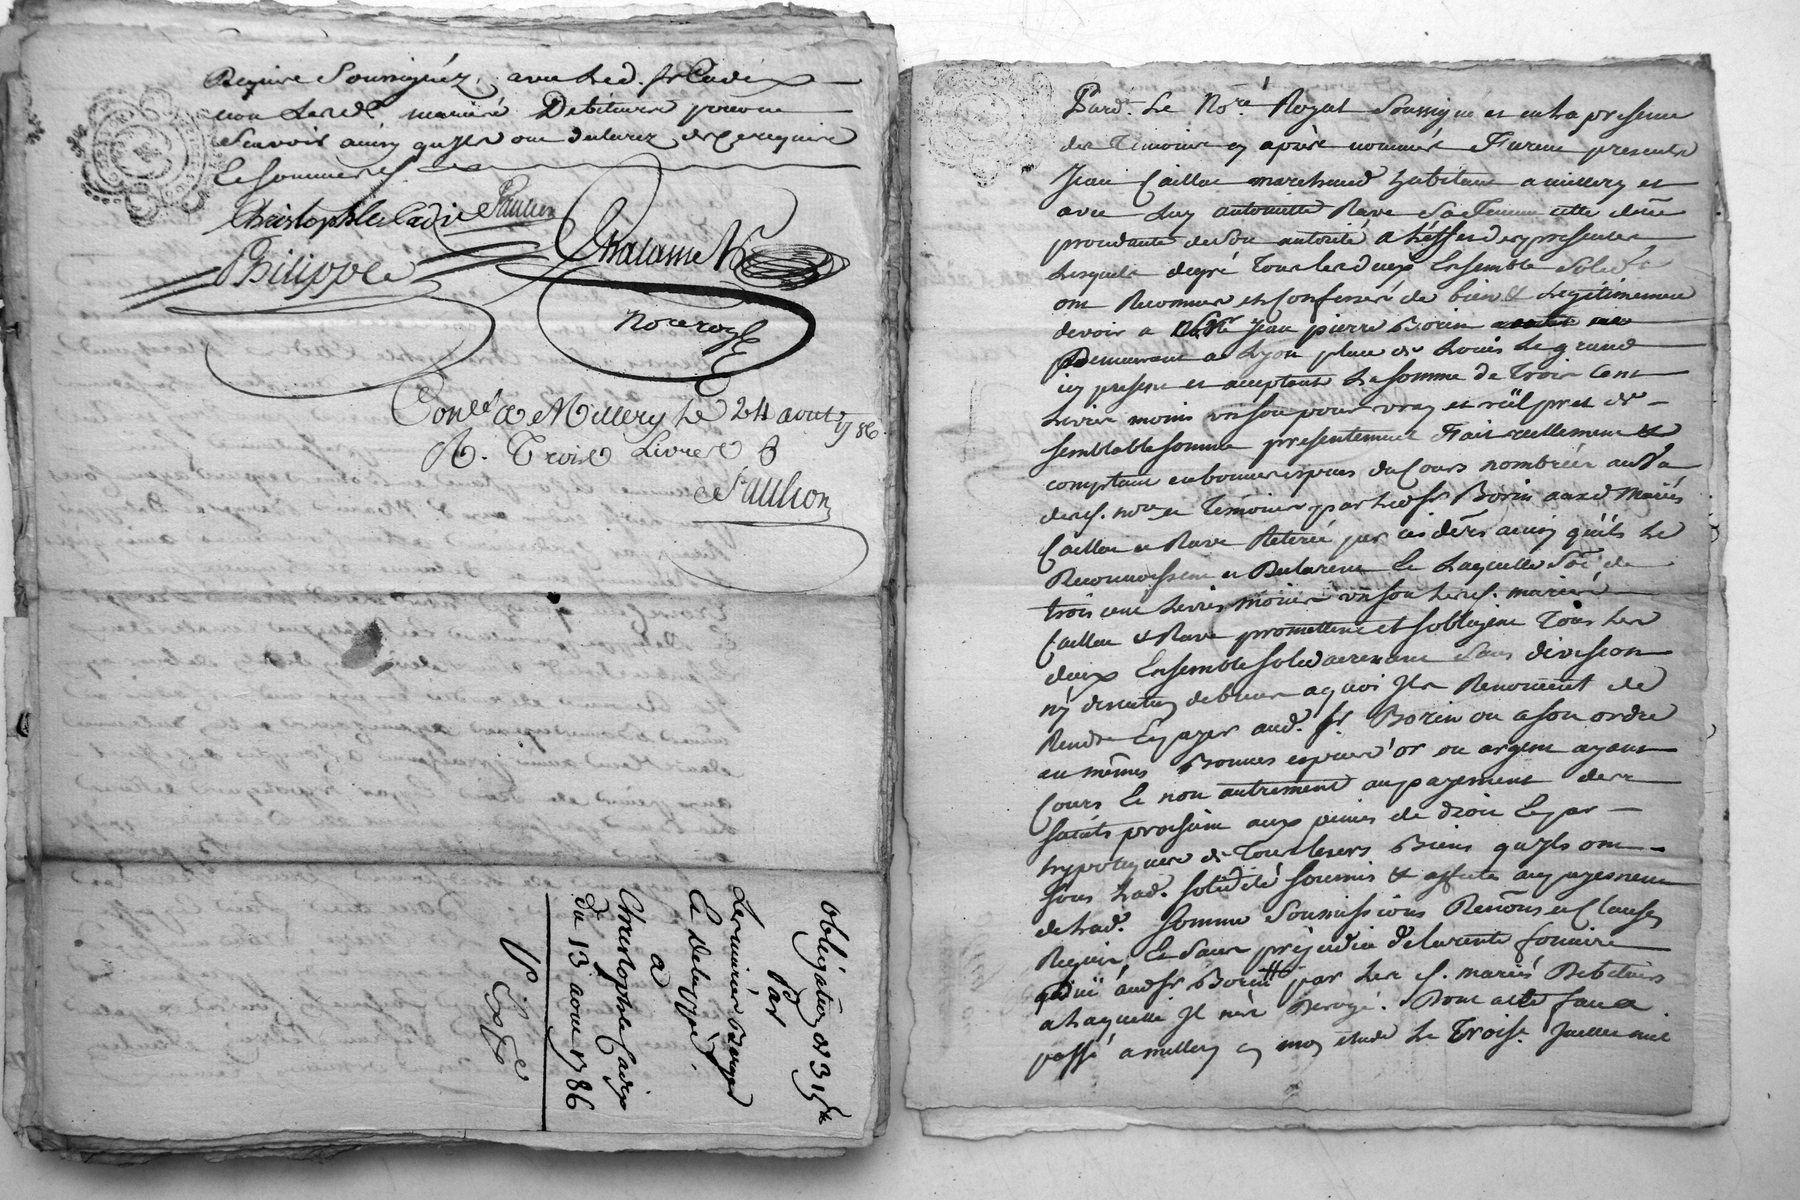 Require Soussignéz, avec led. sr Cadix
non les d. mariés Debiteurs pour ne
Scavoir ainsy qu'ils ont declarez de ce requis
Et sommés
Christophle Cadix Saulion
Philippe
Chatanie
Nore royal
Conlé a Millery le 24 avout 1786
R. Trois Livres
Saulion
obligation de 315ll
Par
Les mariés Berger
Et Delesippé
a
Christophle Cadix
du 13 avout 1786
Expée
Pard. Le Nore Royal Soussigné et en la presence
des Temoins cy après nommés Furent presents
Jean Caillac marchand habitant a millery et
avec luy antoinette Rave Sa Femme elle düe
procedante de Son autorité a l'effet des presentes
Lesquels degré Tous les deux Ensemble Solidt
ont Reconnu et Confessé de bien & Legitimement
devoir a Jean pierre Borin
Demeurant a Lyon place de Louis Le grand
icy present et acceptant La somme de Trois Cent
Livres moins un Sou pour vray et réel pret de
semblable somme presentement Fait reellement &
comptant en bonnes especes du Cours nombrées au vû
desd. nore et Témoins par Led sr Borin auxd Mariés
Caillac et Rave Retirée par ces ders ainsy qu'ils Le
Reconnoissent et Declarent Et Laquelle Soe de
trois cent Livres moins un Sou Lesd. mariés
Caillac & Rave promettent et Sobligent Tous Les
deux Ensemble Solidairement Sans division
ny discution de biens a quoi Ils Renoncent de
Rendre Et payer aud. Sr. Borin ou a son ordre
en mêmes Bonnes especes d'or ou argent ayant
Cours Et non autrement au payement des
Saints prochain aux peines de droit Et par
hypoteque de Tous leurs Biens qu'ils ont
Sous Lad. Solidité Soumis & affectés au payement
de Lad. Somme Soumissions Renons et Clauses
Requis, Et Sans préjudice de la rente fonciere
düe aud sr Borin par Les d. mariés Debiteurs
a Laquelle Il n'est Derogé. Dont acte fait &
passé a millery en mon etude Le Trois Juillet mil